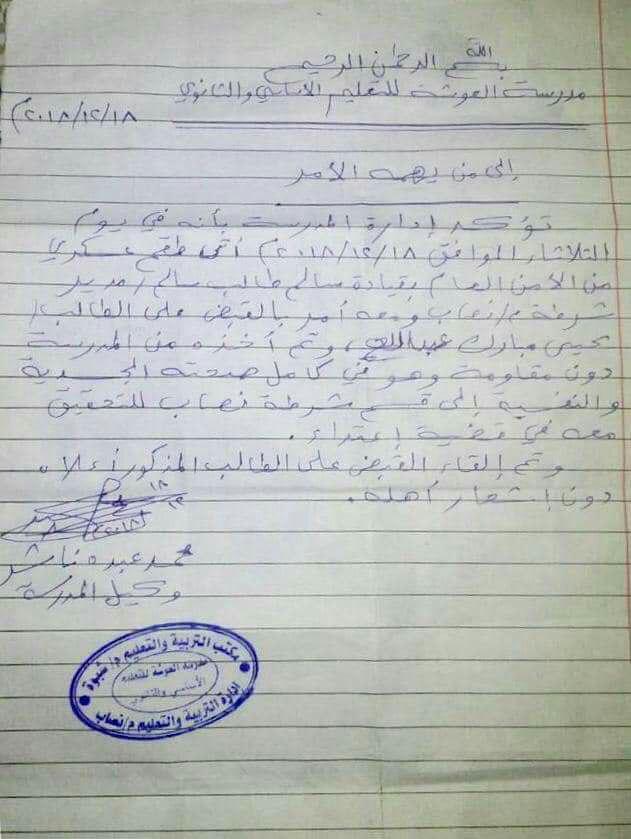 بسم الله الرحمن الرحيم
مدرسة العوشة للتعليم الاساسي والثانوي
٢٠١٨/١٢/١٨م
إلى من يهمه الأمر
تؤكد إدارة المدرسة بأنه في يوم
الثلاثاء الموافق ٢٠١٨/١٢/١٨م أتى طقم عسكري
من الأمن العام بقيادة سالم طالب سالم / مدير
شرطة م/نصاب ومعه أمر بالقبض على الطالب/
يحيى مبارك عبدالله، وتم أخذه من المدرسة
دون مقاومة وهو في كامل صحته الجسدية
والنفسية إلى قسم شرطة نصاب للتحقيق
معه في قضية إعتداء.
وتم إلقاء القبض على الطالب المذكور أعلاه
دون إشعار أهله.
١٨
١٢
٢٠١٨م
محمد عبده ناشر
وكيل المدرسة
مكتب التربية والتعليم م/ شبوة
مدرسة العوشة للتعليم
الأساسي والثانوي
إدارة التربية والتعليم م/نصاب